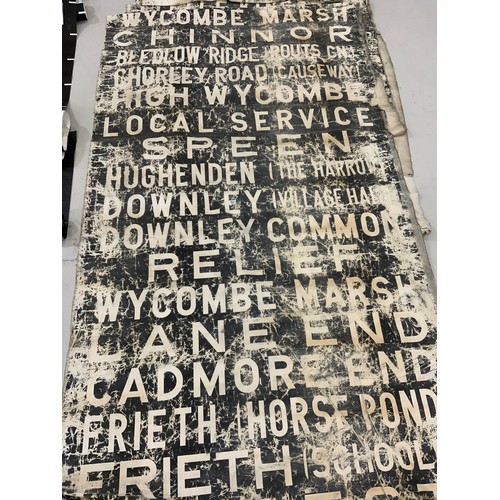 WYCOMBE MARSH
CHINNOR
BLEDLOW RIDGE (ROUTS GN.)
CHORLEY ROAD (CAUSEWAY)
HIGH WYCOMBE
LOCAL SERVICE
SPEEN
HUGHENDEN (THE HARROW)
DOWNLEY (VILLAGE HALL
DOWNLEY COMMON
RELIEF
WYCOMBE MARSH
LANE END
CADMORE END
FRIETH (HORSE POND
FRIETH (SCHOOL